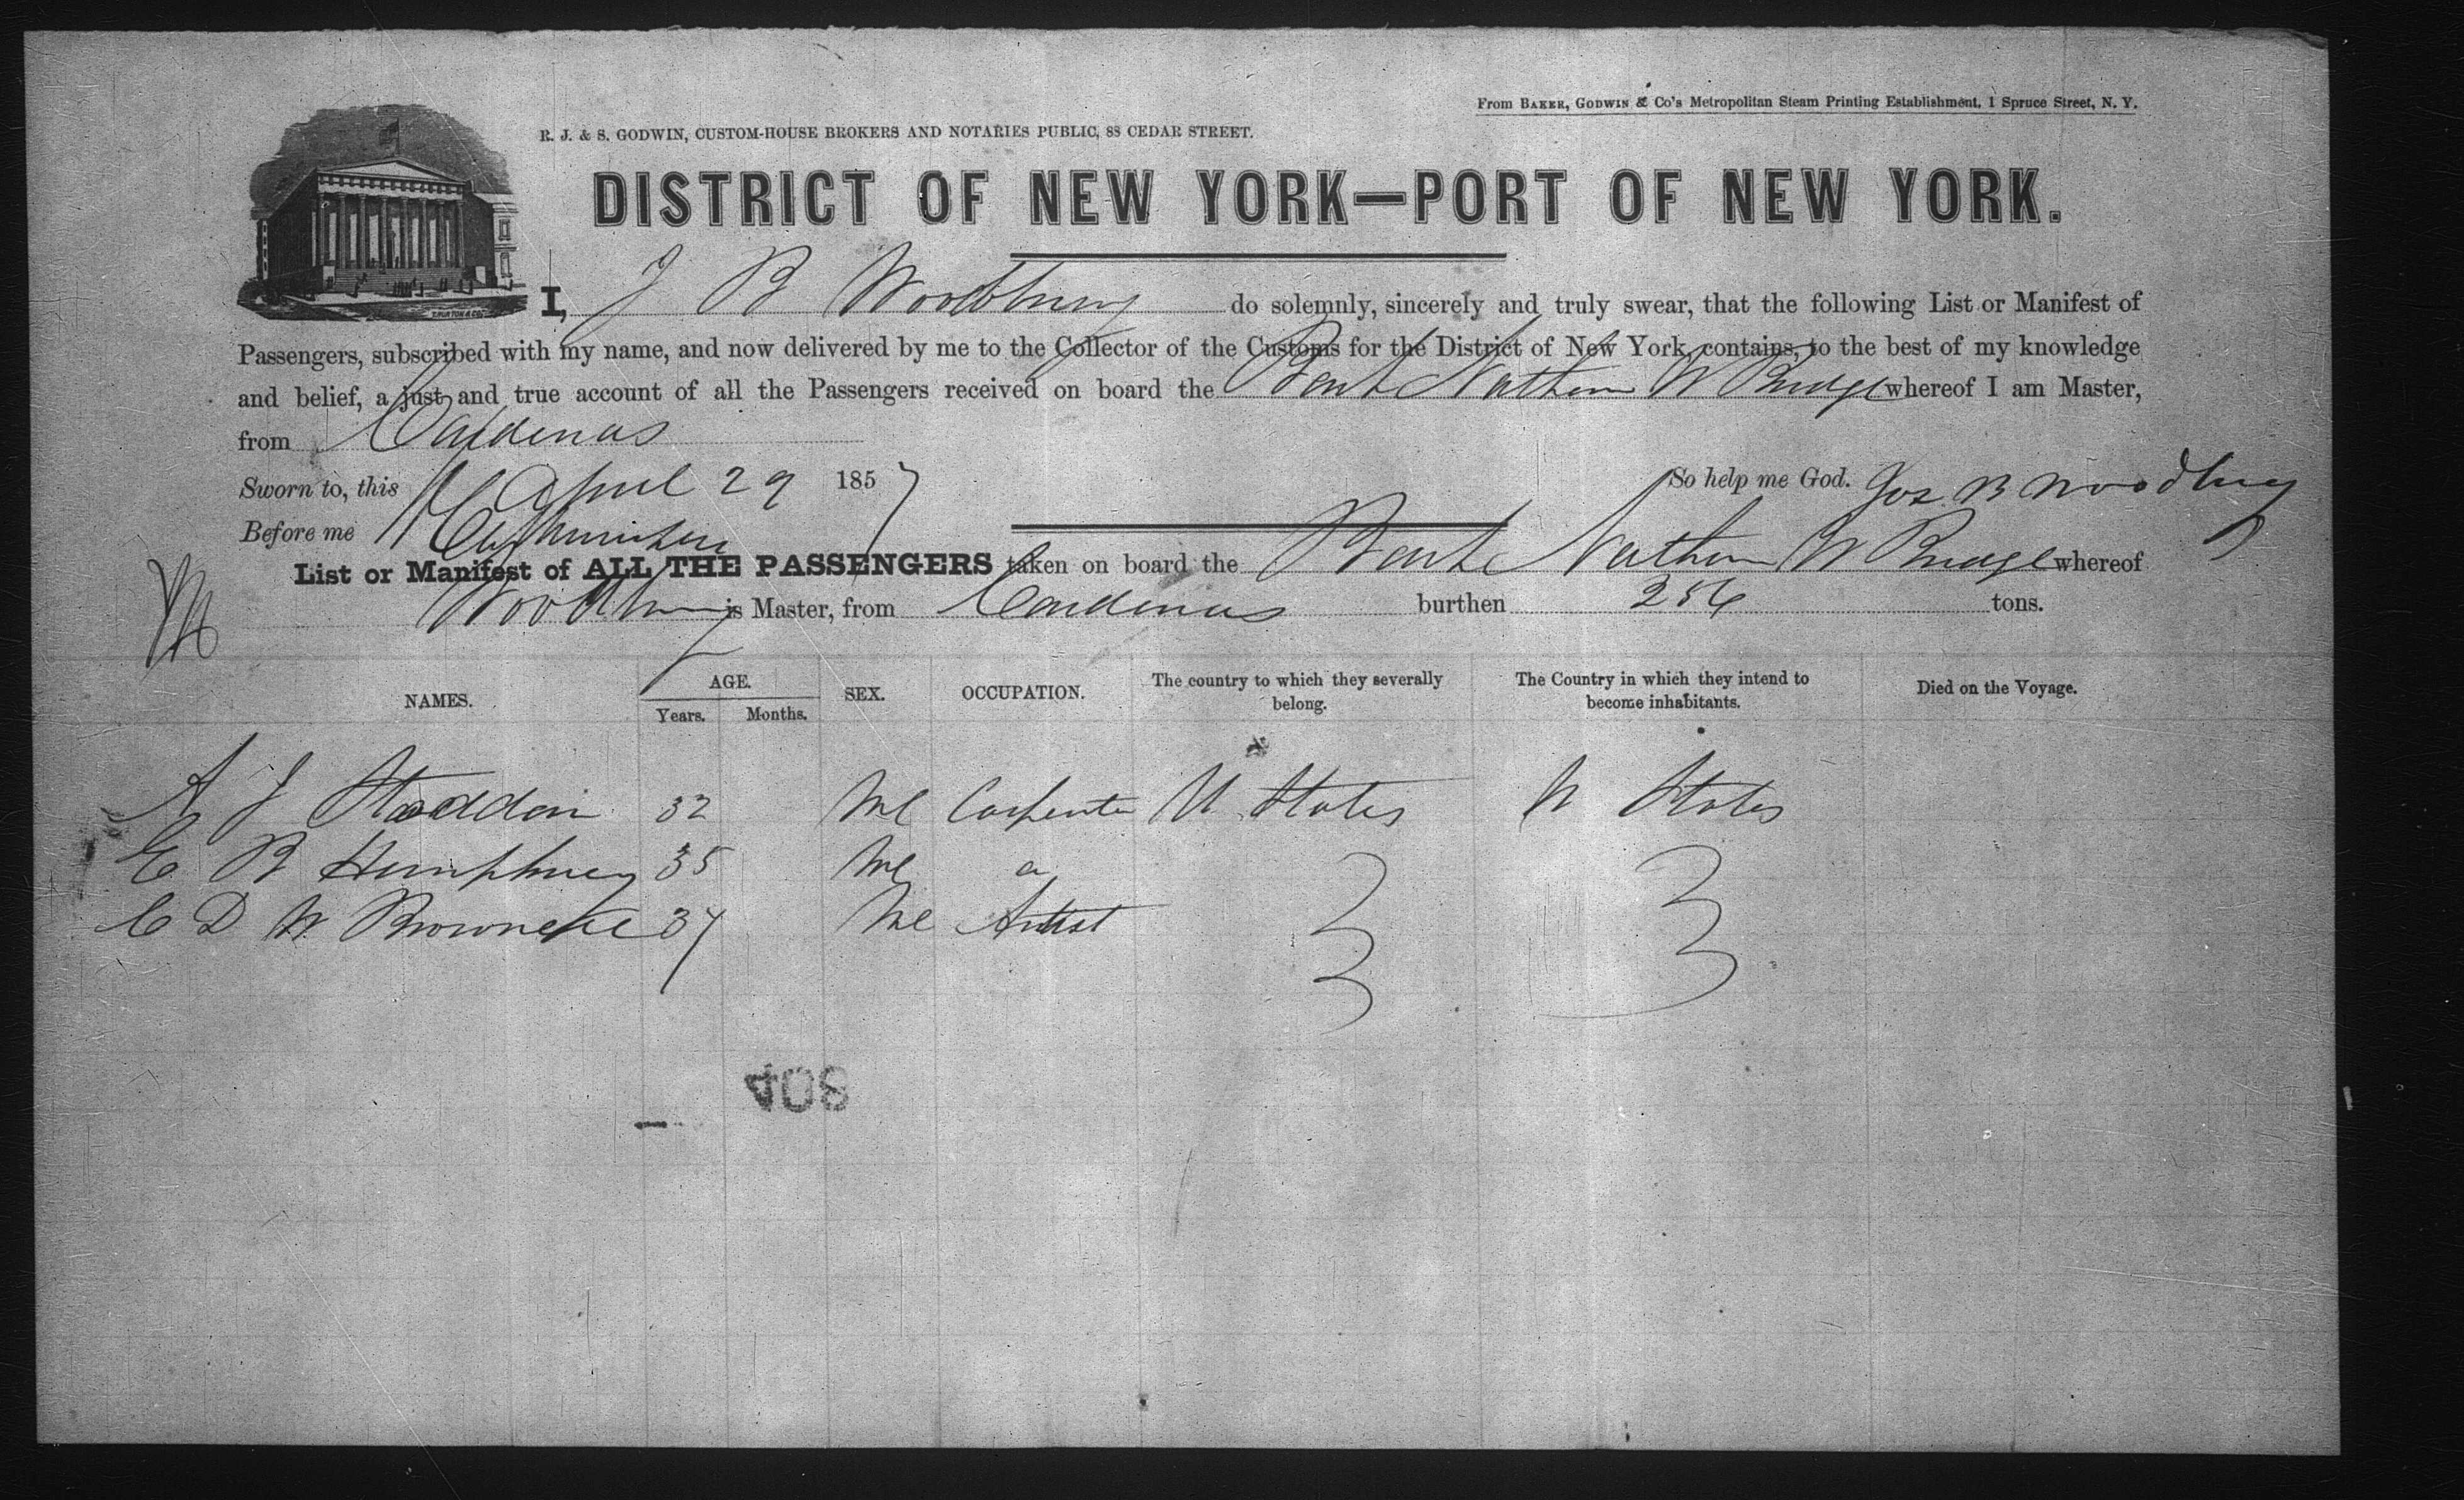 From BAKER, GODWIN & Co's Metropolitan Steam Printing Establishment, 1 Spruce Street, N. Y.
R. J. & S. GODWIN, CUSTOM-HOUSE BROKERS AND NOTARIES PUBLIC, 88 CEDAR STREET.
DISTRICT OF NEW YORK—PORT OF NEW YORK.
I, J B Woodbury do solemnly, sincerely and truly swear, that the following List or Manifest of
Passengers, subscribed with my name, and now delivered by me to the Collector of the Customs for the District of New York, contains, to the best of my knowledge
and belief, a just and true account of all the Passengers received on board the Bark Nathan W Bridge whereof I am Master,
from Cardenas
Sworn to, this April 29 1857 So help me God. Jos B Woodbury
Before me
List or Manifest of ALL THE PASSENGERS taken on board the Bark Nathan W Bridge whereof
Woodbury is Master, from Cardenas burthen 256 tons.
NAMES. AGE. Years. Months. SEX. OCCUPATION. The country to which they severally belong. The Country in which they intend to become inhabitants. Died on the Voyage.
A J Stoddon 32 Ml Carpenter U States U States
E B Humphrey 35 Ml a
C D W Brownelle 34 Ml Artist
408